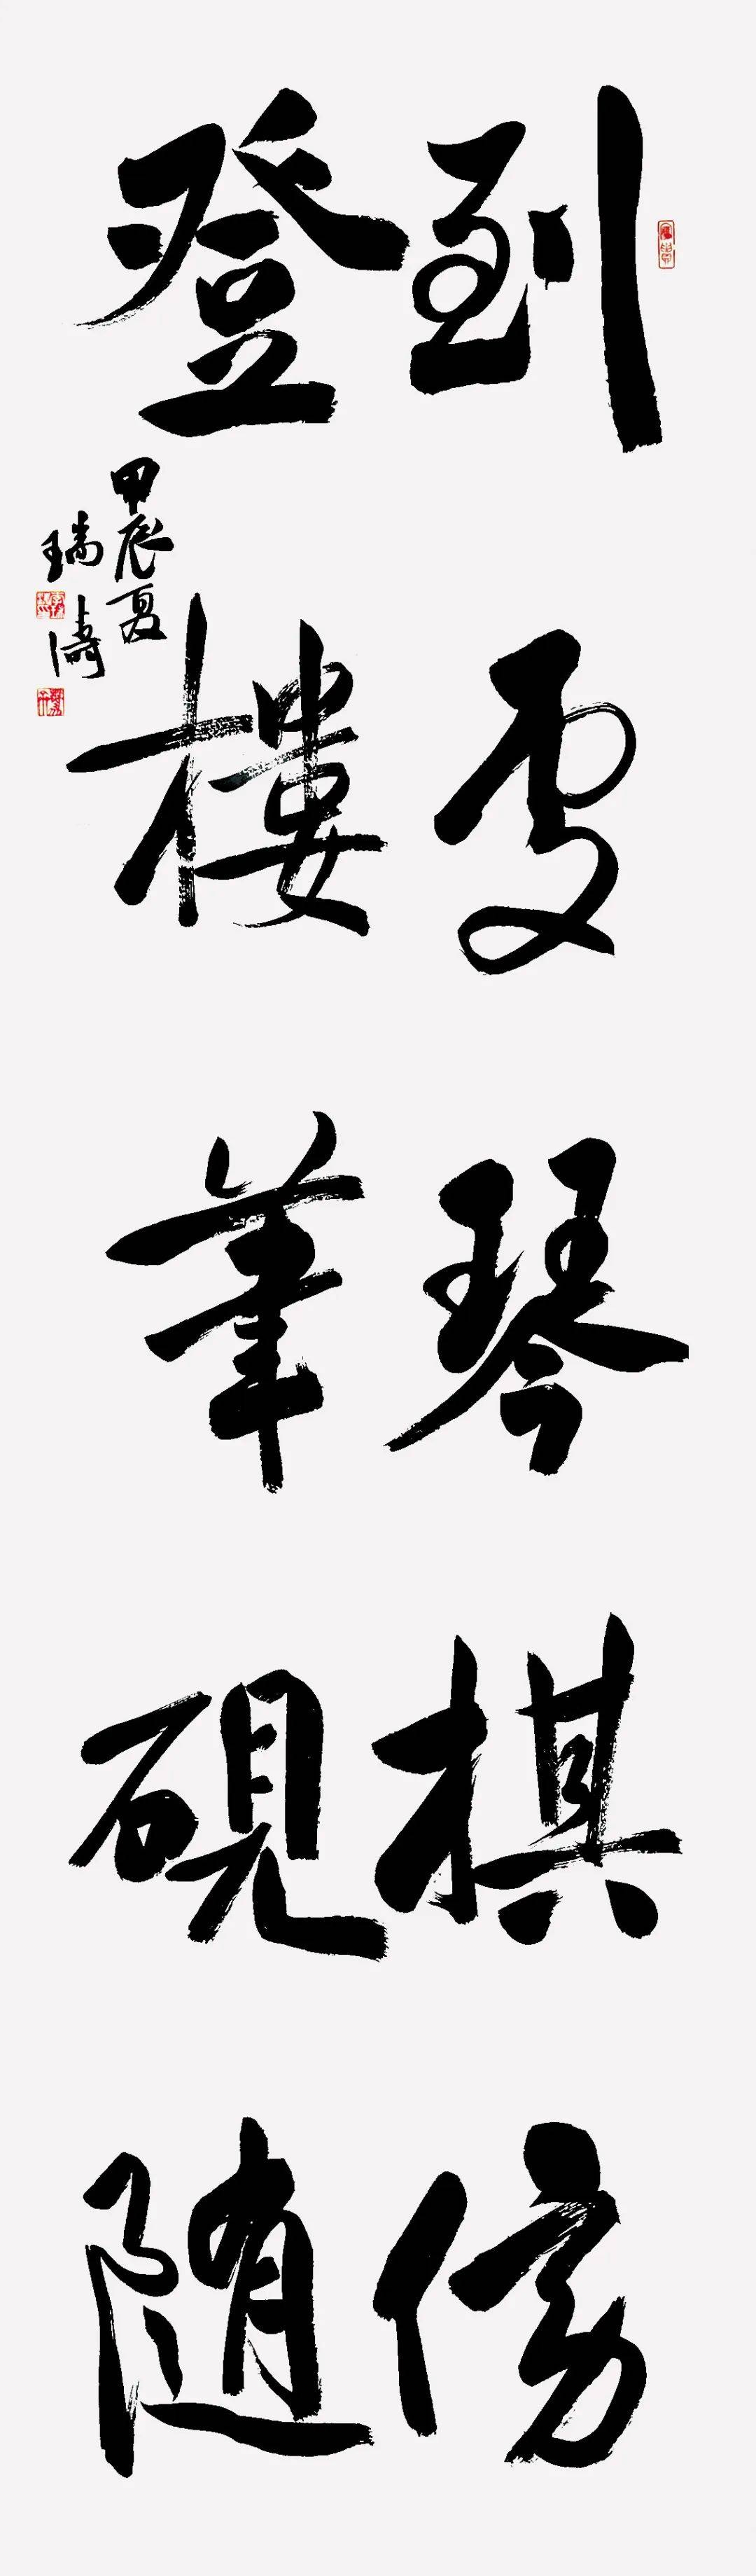 到處琴棋傍
登樓筆硯随
甲辰夏
瑞濤